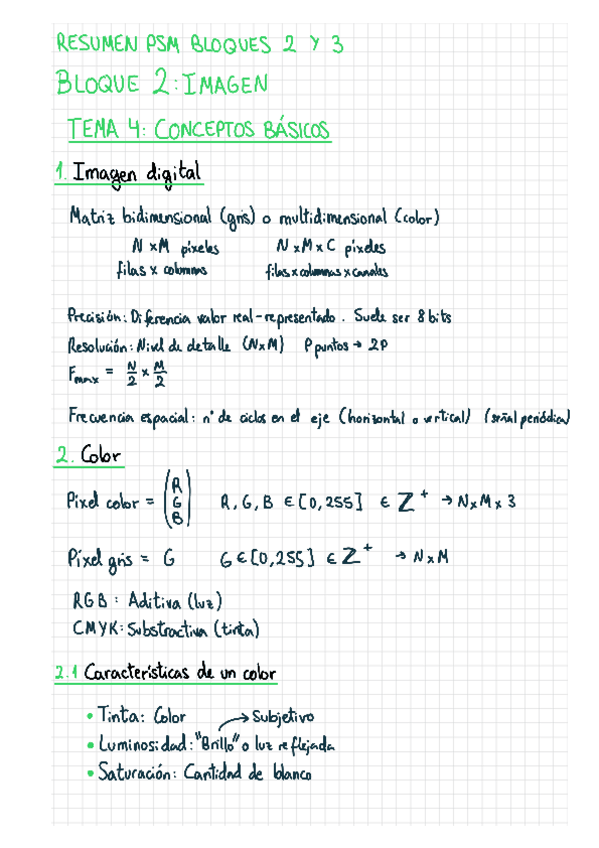 RESUMEN PSM BLOQUES 2 Y 3
BLOQUE 2: IMAGEN
TEMA 4: CONCEPTOS BÁSICOS
1. Imagen digital
Matriz bidimensional (gris) o multidimensional (color)
N x M píxeles N x M x C píxeles
filas x columnas filas x columnas x canales
Precisión: Diferencia valor real-representado. Suele ser 8 bits
Resolución: Nivel de detalle (NxM) P puntos → 2P
Fmax = N/2 x M/2
Frecuencia espacial: nº de ciclos en el eje (horizontal o vertical) (señal periódica)
2. Color
Píxel color = (R G B) R, G, B ∈ [0,255] ∈ Z⁺ → N x M x 3
Píxel gris = G G ∈ [0,255] ∈ Z⁺ → N x M
RGB: Aditiva (luz)
CMYK: Substractiva (tinta)
2.1 Características de un color
• Tinta: Color → Subjetivo
• Luminosidad: "Brillo" o luz reflejada
• Saturación: Cantidad de blanco